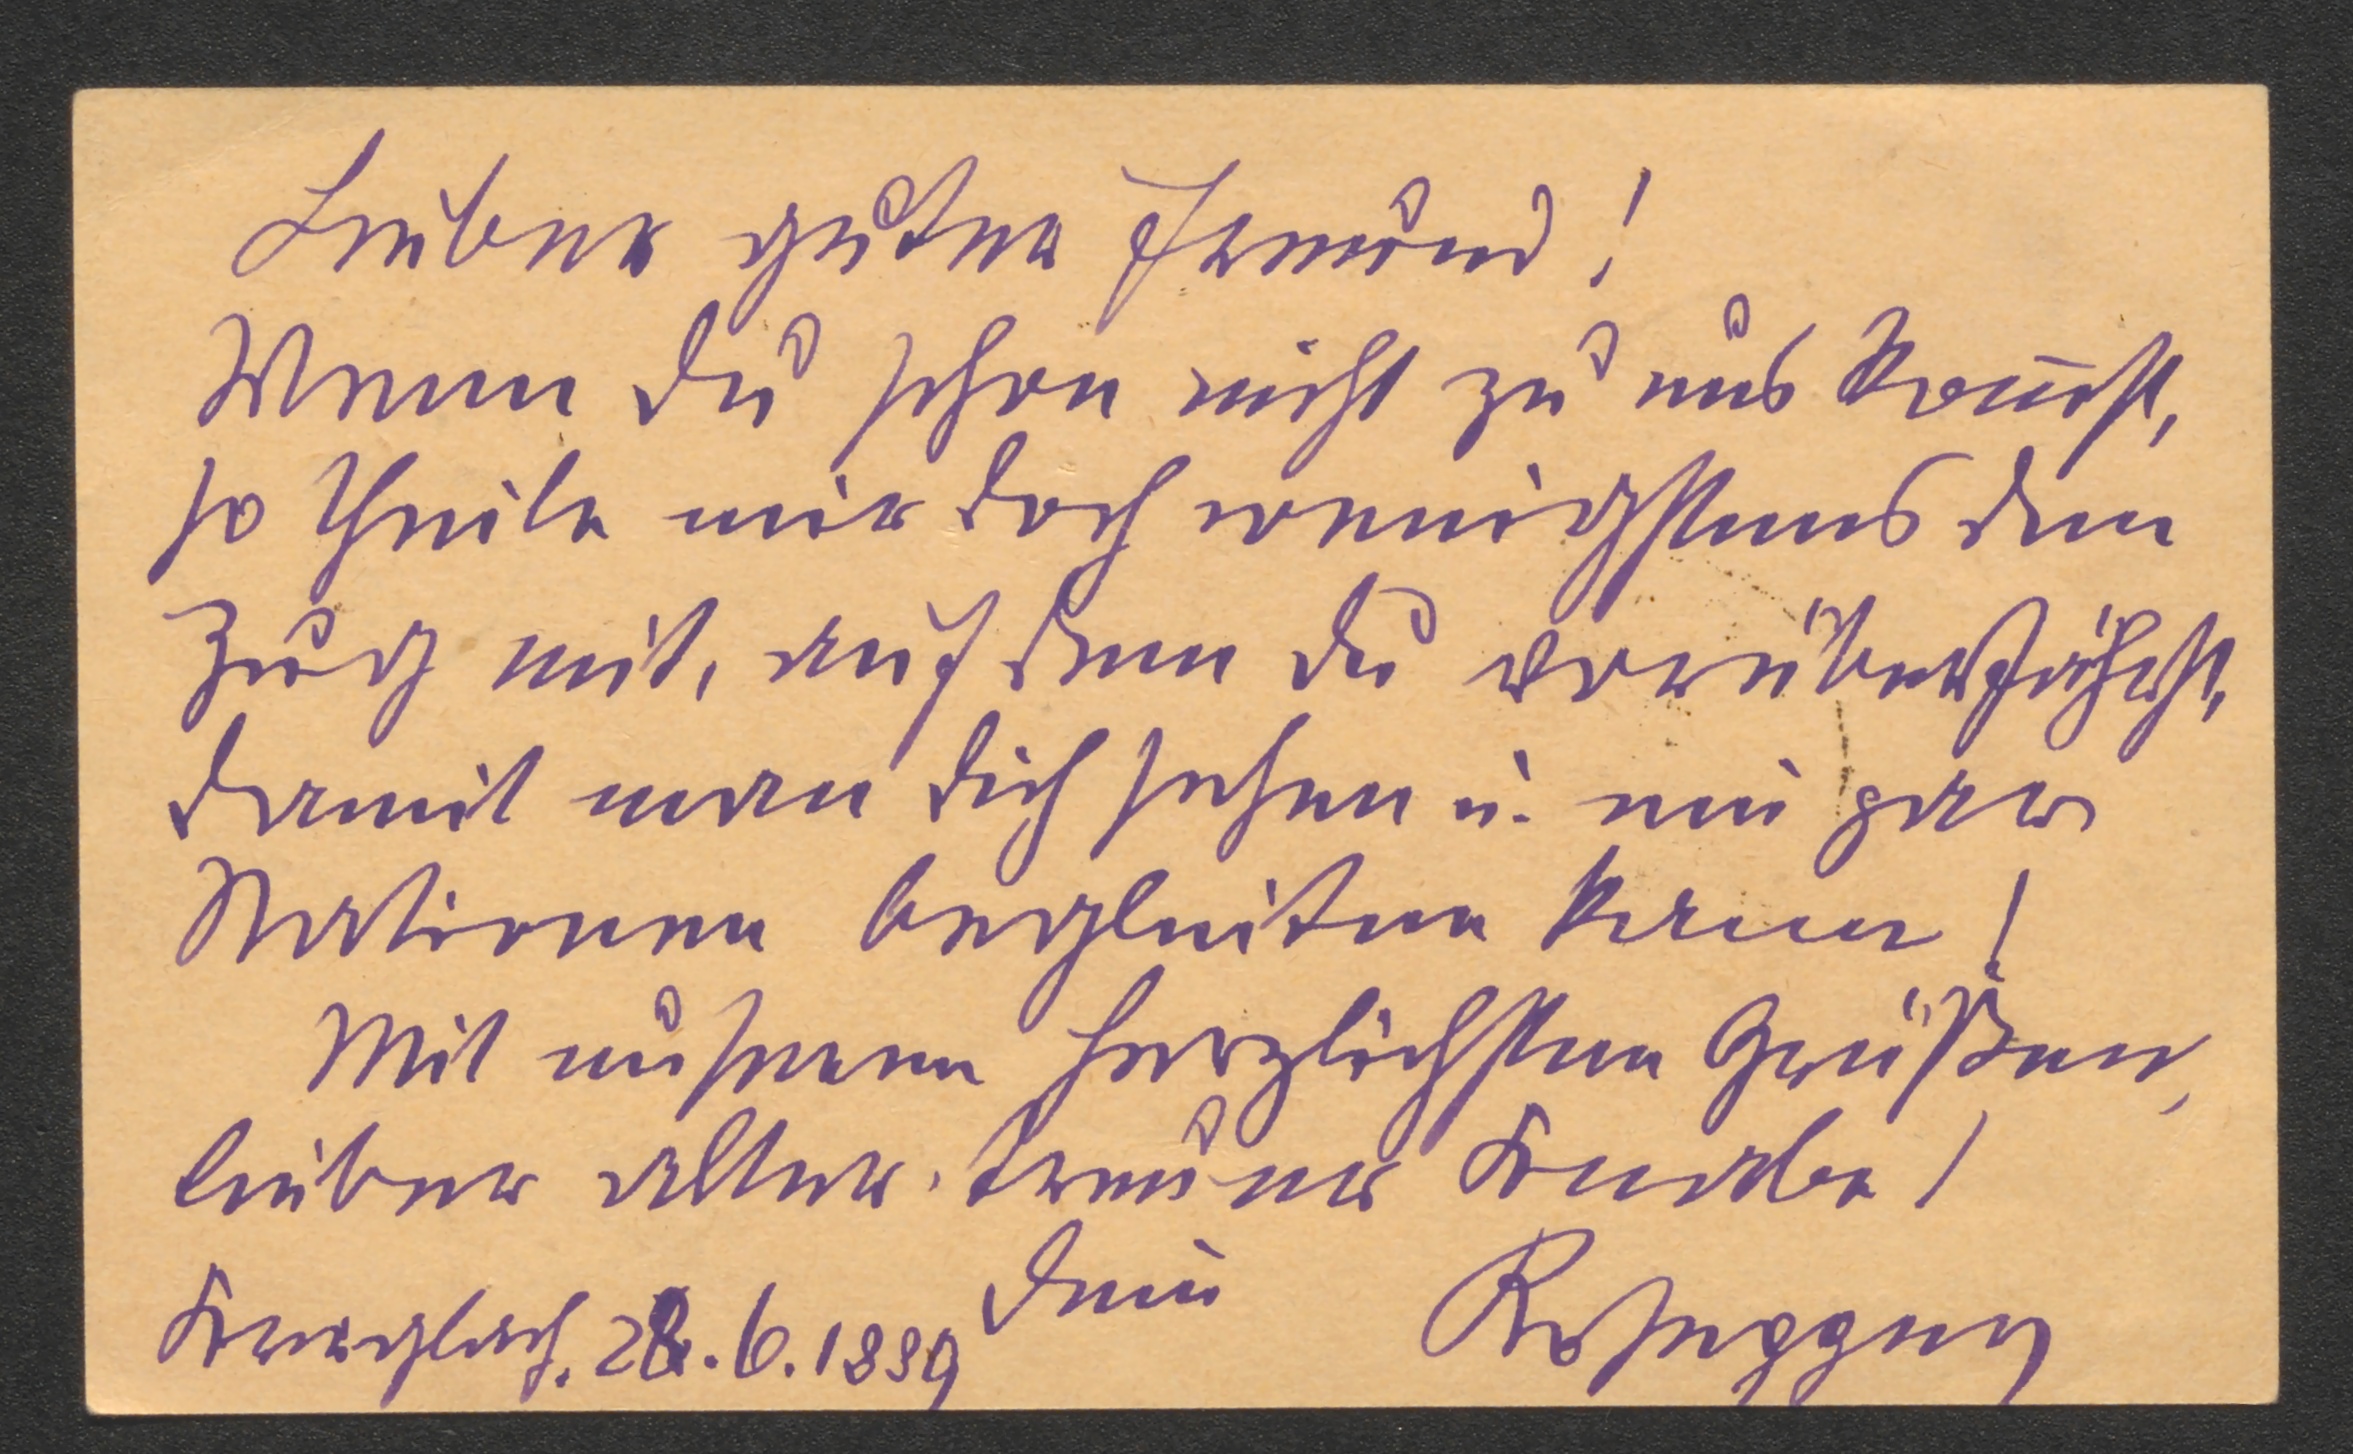 Lieber guter Freund!
Wenn du schon nicht zu uns kom̅st,
so theile mir doch wenigstens den
Zug mit, auf dem du vorüberfährst,
damit man dich sehen u. ein paar
Stationen begleiten kann!
Mit unseren herzlichsten Grüßen,
lieber alter, treuer Knabe!
Dein
Krieglach, 28.6.1889 Rosegger